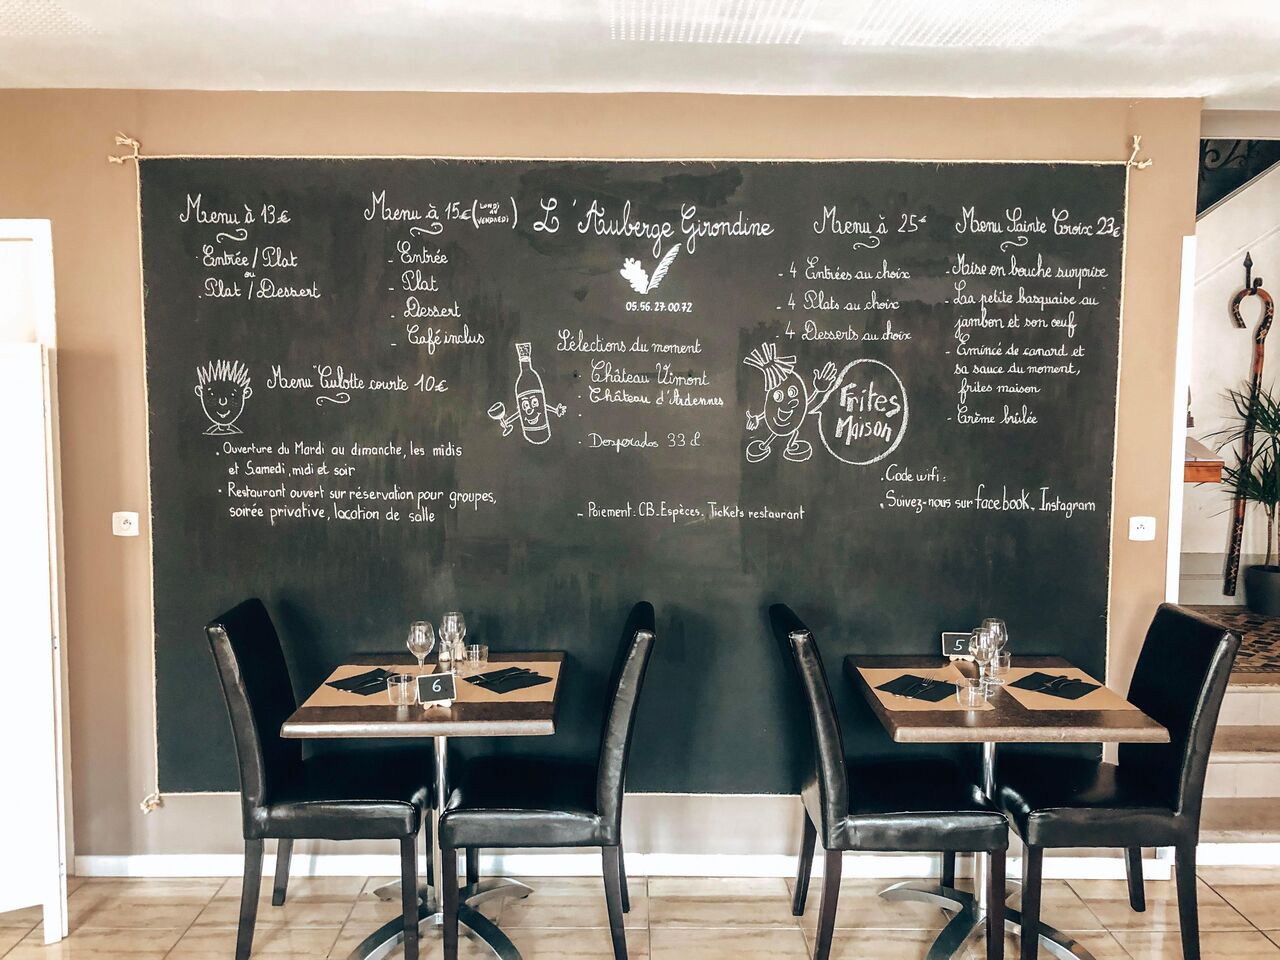 L'Auberge Girondine
05.56.27.00.72
Menu à 13€
Entrée / Plat
ou
Plat / Dessert
Menu à 15€ (LUNDI AU VENDREDI)
- Entrée
- Plat
- Dessert
- Café inclus
Menu "Culotte courte 10€
. Ouverture du Mardi au dimanche, les midis
et Samedi, midi et soir
. Restaurant ouvert sur réservation pour groupes,
soirée privative, location de salle
Sélections du moment
. Château Vimont
. Château d'Ardennes
.
. Desperados 33 cl
- Paiement: CB. Espèces. Tickets restaurant
Menu à 25€
- 4 Entrées au choix
- 4 Plats au choix
- 4 Desserts au choix
Frites
Maison
Menu Sainte Croix 23€
- Mise en bouche surprise
- La petite basquaise au
jambon et son œuf
- Emincé de canard et
sa sauce du moment,
frites maison
- Crème brûlée
. Code wifi:
. Suivez-nous sur facebook. Instagram
6
5